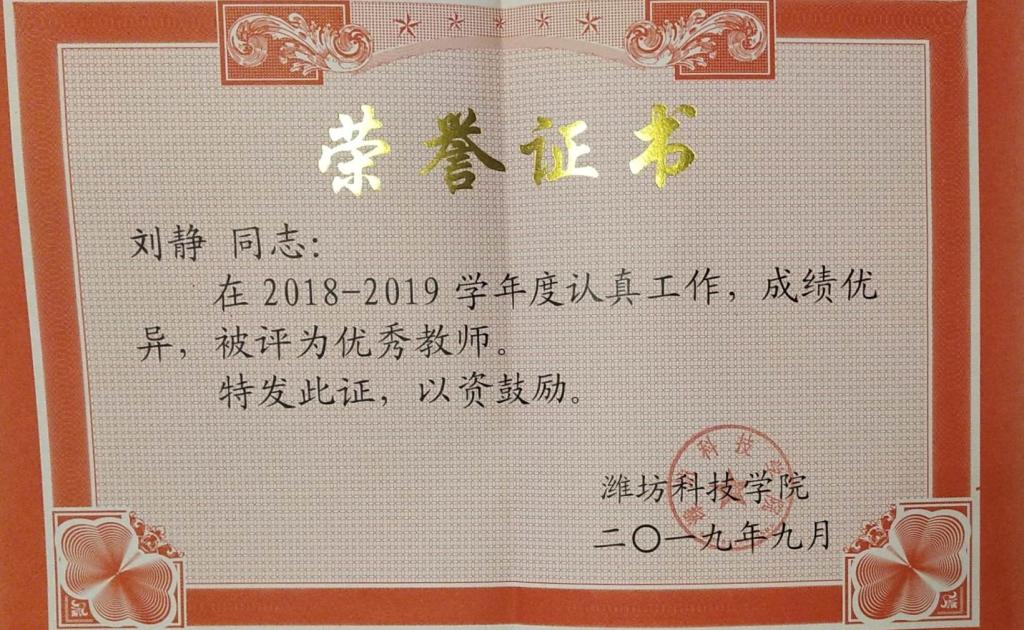 荣誉证书
刘静 同志：
在2018-2019学年度认真工作，成绩优
异，被评为优秀教师。
特发此证，以资鼓励。
潍坊科技学院
二〇一九年九月